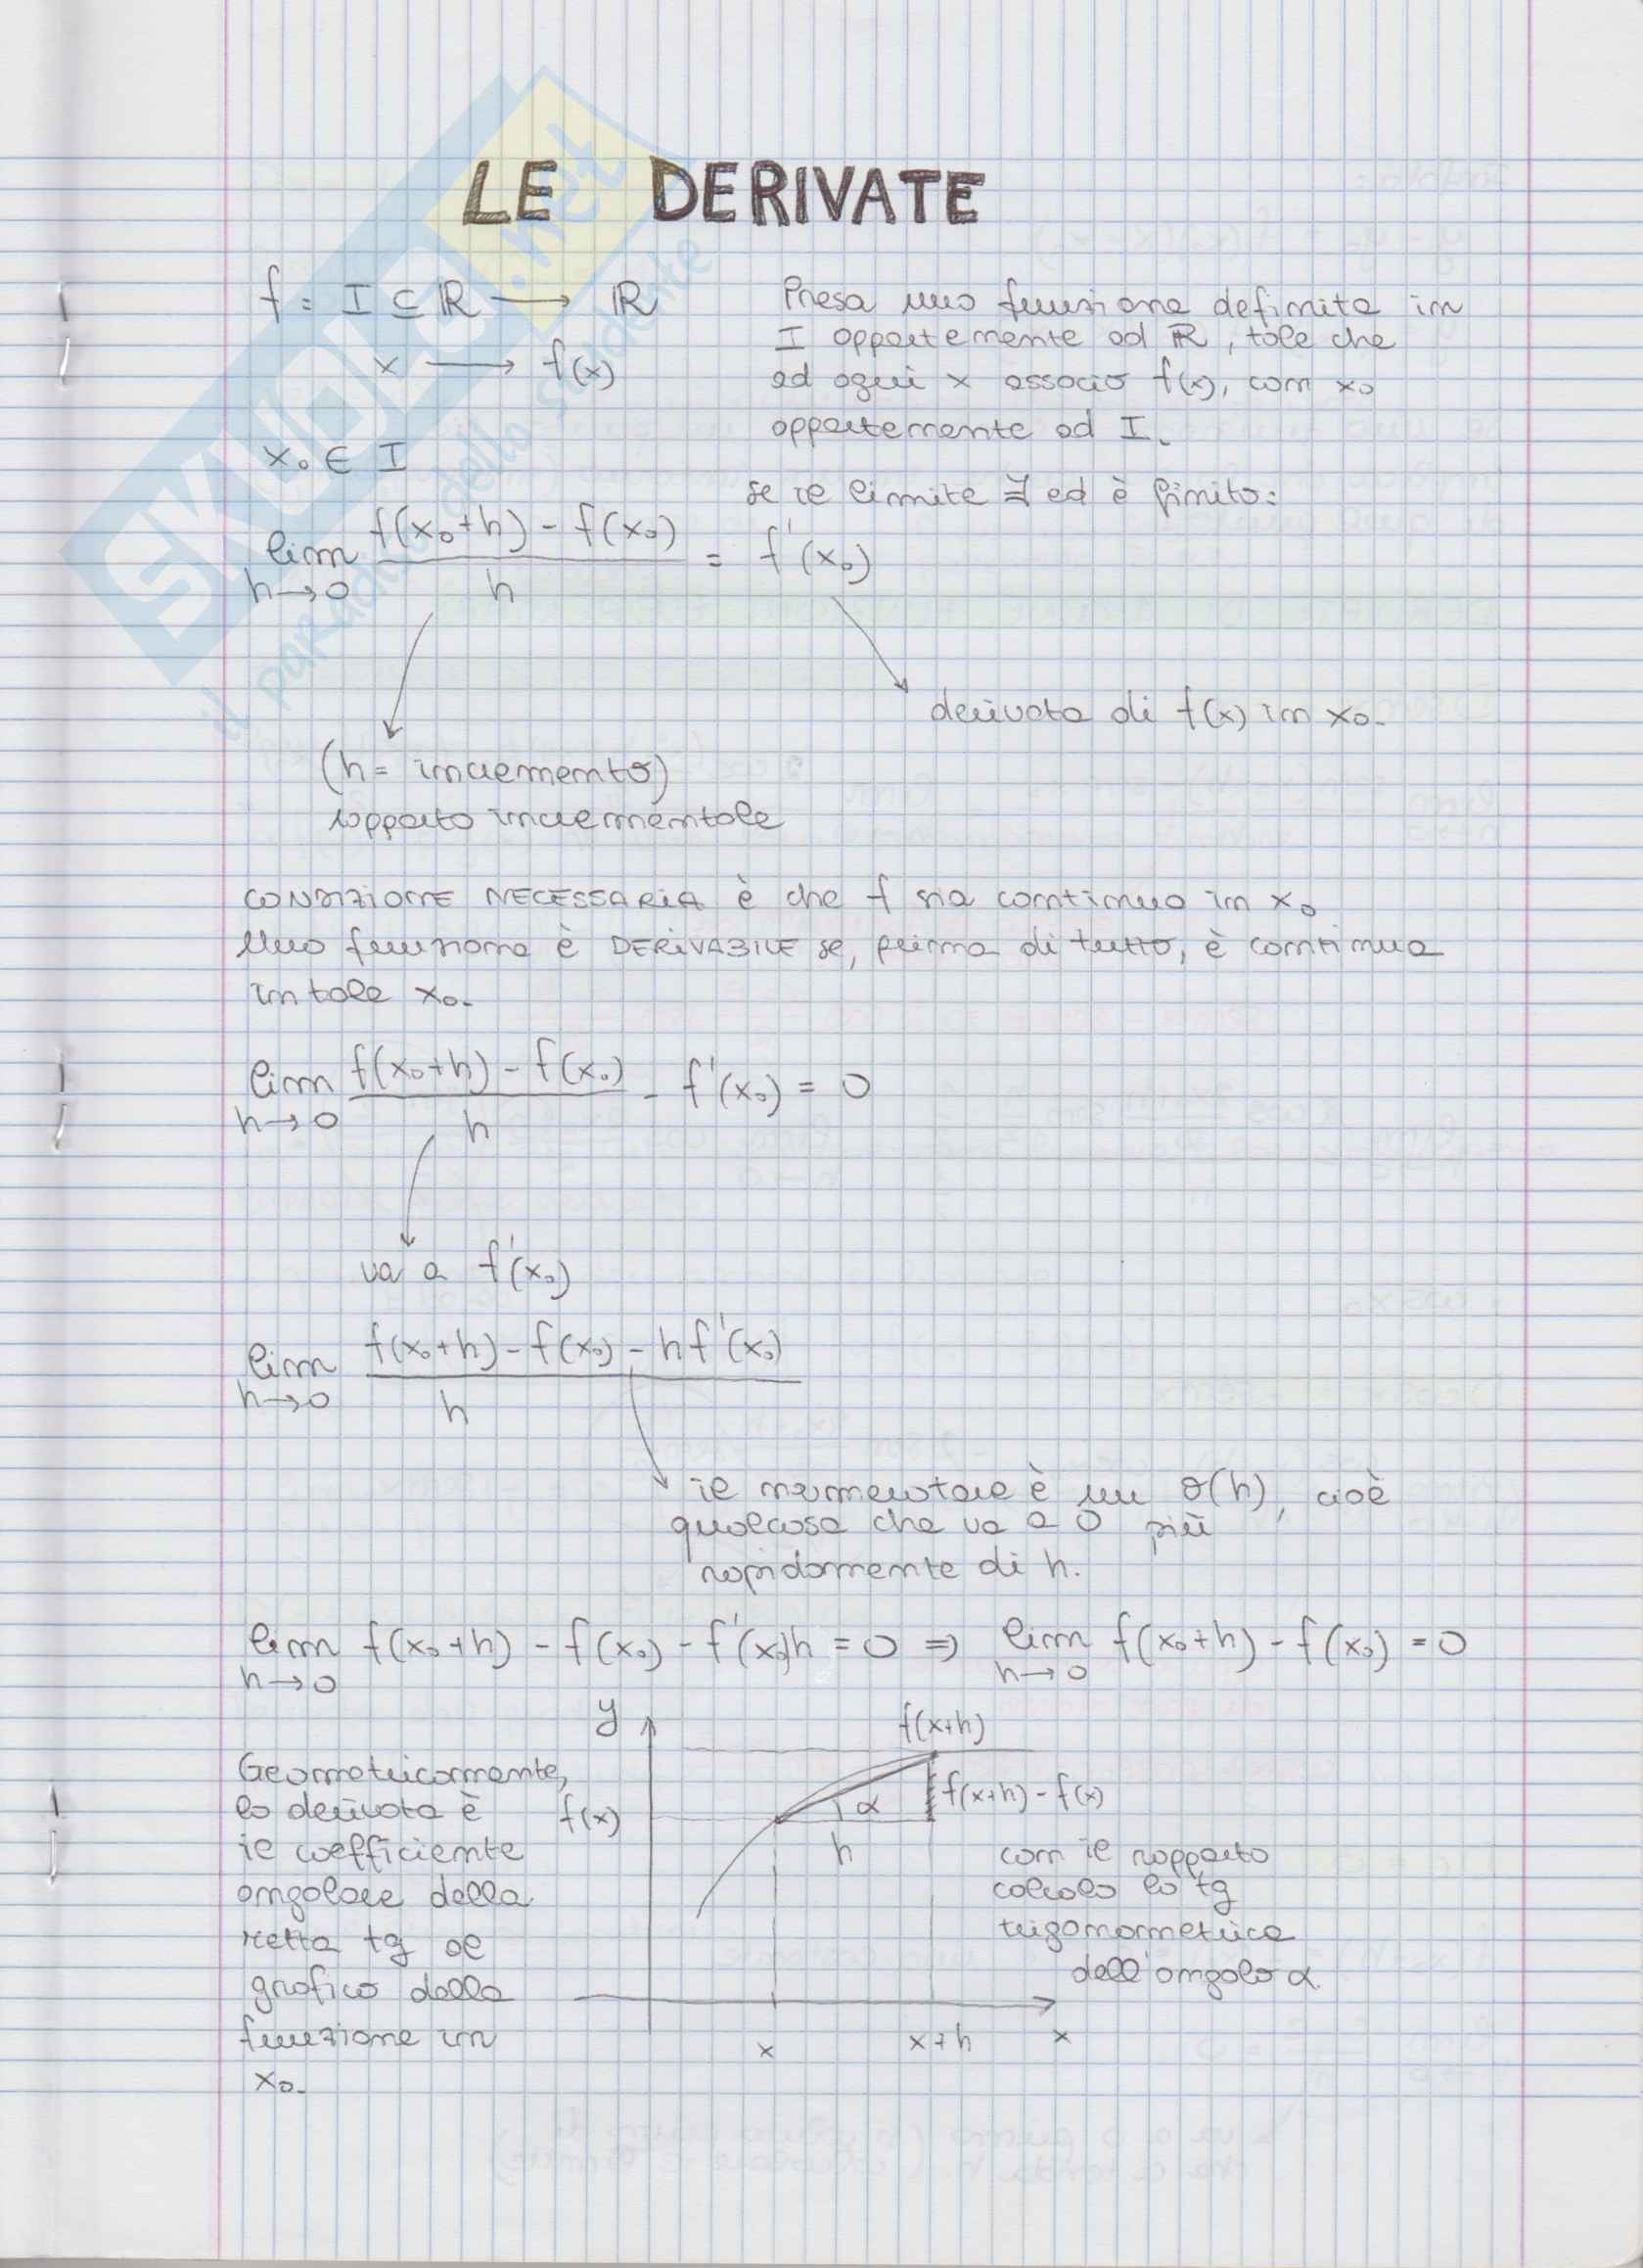 LE DERIVATE
f = I ⊆ ℝ ⟶ ℝ
x ⟶ f(x)
x₀ ∈ I
Presa una funzione definita in
I appartenente ad ℝ, tale che
ad ogni x associo f(x), con x₀
appartenente ad I.
se il limite ∃ ed è finito:
lim h→0 (f(x₀+h) - f(x₀))/h = f'(x₀)
derivata di f(x) in x₀.
(h = incremento)
rapporto incrementale
CONDIZIONE NECESSARIA è che f sia continua in x₀
Una funzione è DERIVABILE se, prima di tutto, è continua
in tale x₀.
lim h→0 (f(x₀+h) - f(x₀))/h - f'(x₀) = 0
va a f'(x₀)
lim h→0 (f(x₀+h) - f(x₀) - hf'(x₀))/h
il numeratore è un o(h), cioè
qualcosa che va a 0 più
rapidamente di h.
lim h→0 f(x₀+h) - f(x₀) - f'(x₀)h = 0 ⇒ lim h→0 f(x₀+h) - f(x₀) = 0
Geometricamente,
la derivata è
il coefficiente
angolare della
retta tg al
grafico della
funzione in
x₀.
y
f(x+h)
f(x+h) - f(x)
f(x)
α
h
con il rapporto
calcolo la tg
trigonometrica
dell'angolo α.
x
x+h
x
SKUOLA.net
il paradiso dello studente